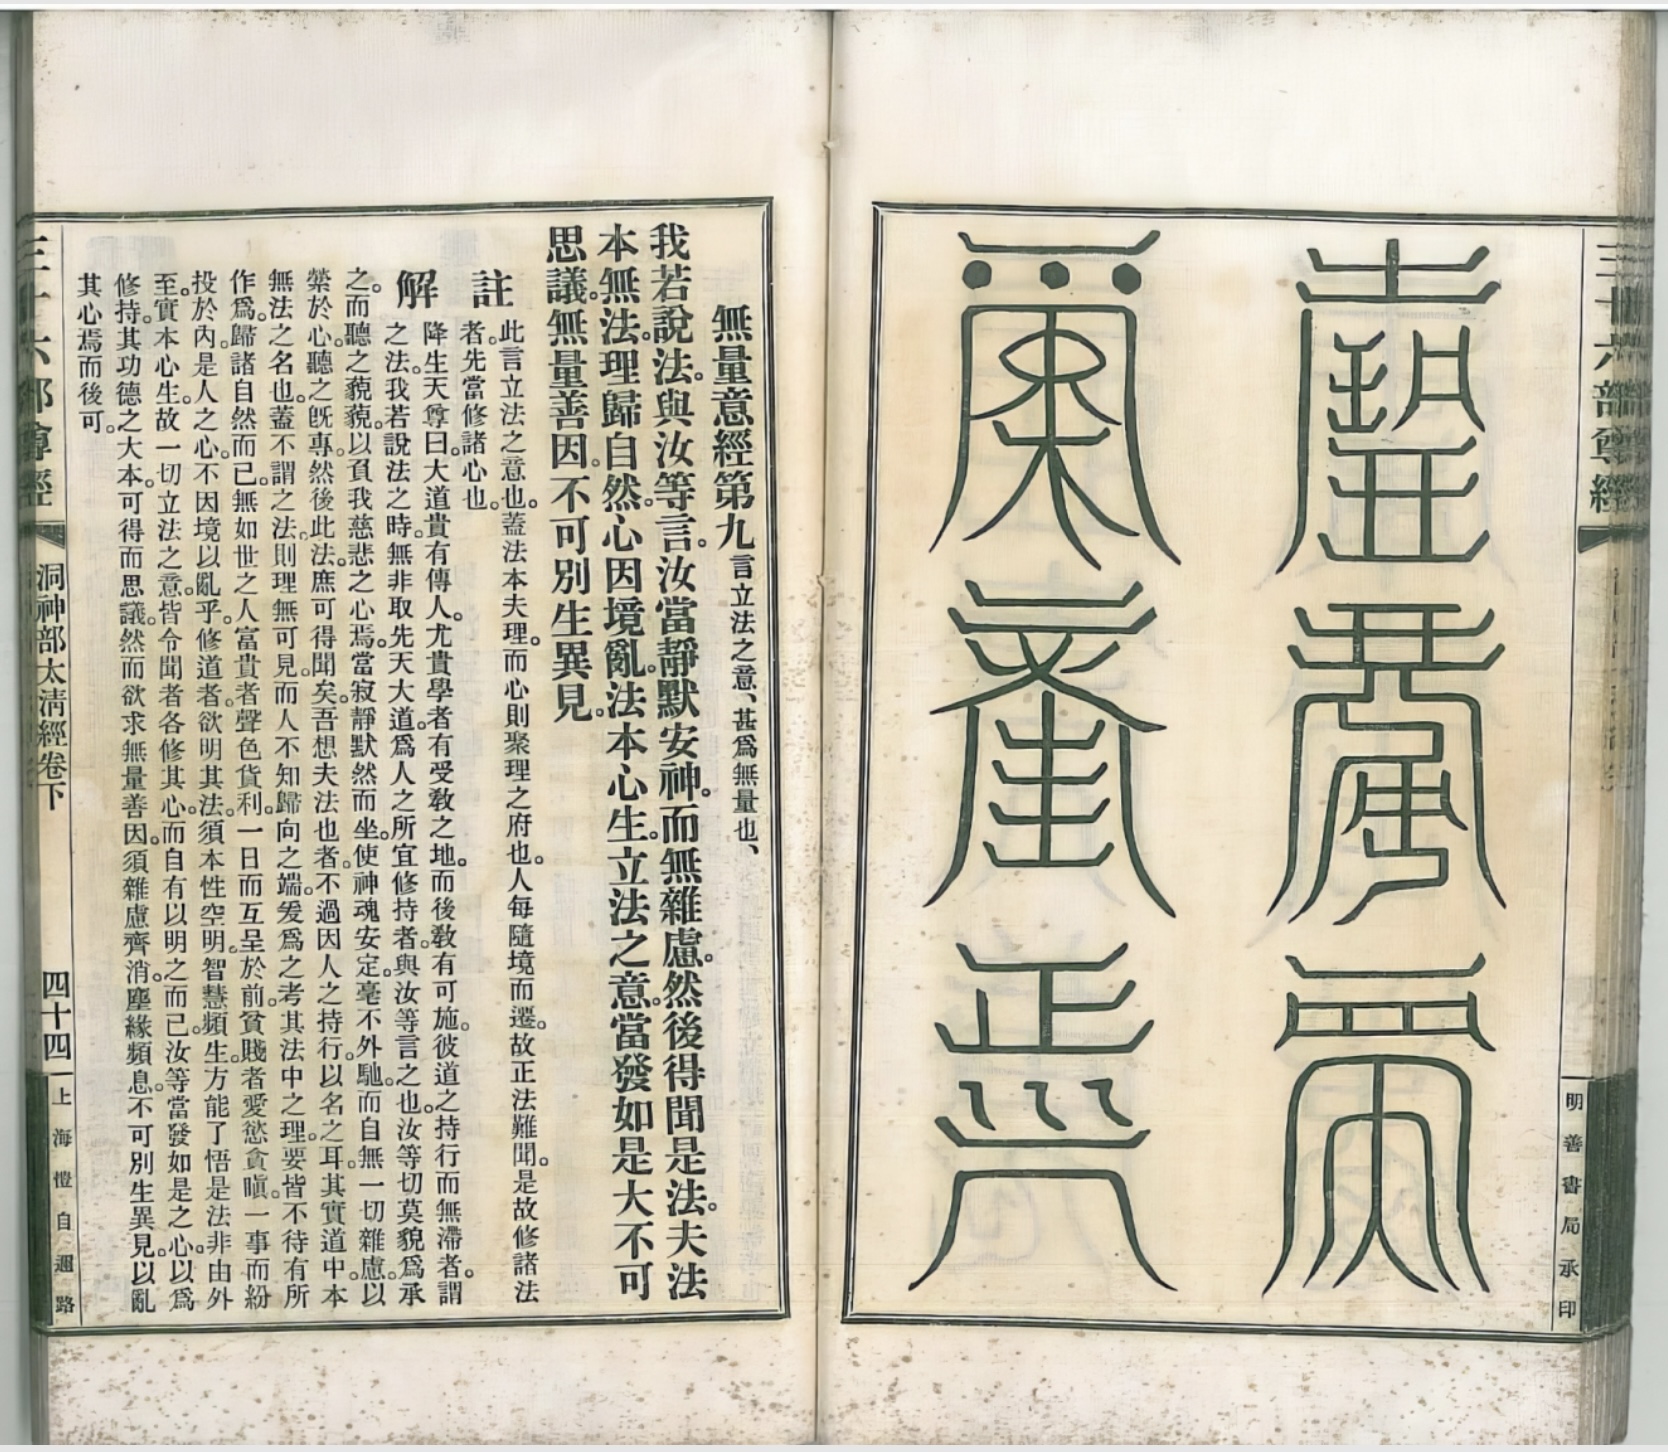 三十六部尊經
明善書局承印
無量意經第九言立法之意、甚為無量也、
我若說法。與汝等言。汝當靜默安神。而無雜慮。然後得聞是法。夫法
本無法。理歸自然。心因境亂。法本心生。立法之意。當發如是大不可
思議。無量善因。不可別生異見。
註解
此言立法之意也。蓋法本夫理。而心則聚理之府也。人每隨境而遷。故正法難聞。是故修諸法
者。先當修諸心也。
降生天尊曰。大道貴有傳人。尤貴學者有受教之地。而後教有可施。彼道之持行而無滯者。謂
之法。我若說法之時。無非取先天大道。為人之所宜修持者。與汝等言之也。汝等切莫貌為承
之。而聽之藐藐。以負我慈悲之心焉。當寂靜默然而坐。使神魂安定。毫不外馳。而自無一切雜慮。以
縈於心。聽之既專。然後此法。庶可得聞矣。吾想夫法也者。不過因人之持行。以名之耳。其實道中。本
無法之名也。蓋不謂之法。則理無可見。而人不知歸向之端。爰為之考其法中之理。要皆不待有所
作為。歸諸自然而已。無如世之人。富貴者聲色貨利。一日而互呈於前。貧賤者愛慾貪瞋。一事而紛
投於內。是人之心。不因境以亂乎。修道者。欲明其法。須本性空明。智慧頻生。方能了悟是法。非由外
至。實本心生。故一切立法之意。皆令聞者各修其心。而自有以明之而已。汝等當發如是之心。以為
修持。其功德之大本。可得而思議。然而欲求無量善因。須雜慮齊消。塵緣頻息。不可別生異見。以亂
其心焉而後可。
三十六部尊經
洞神部太清經卷下
四十四
上海愷自邇路